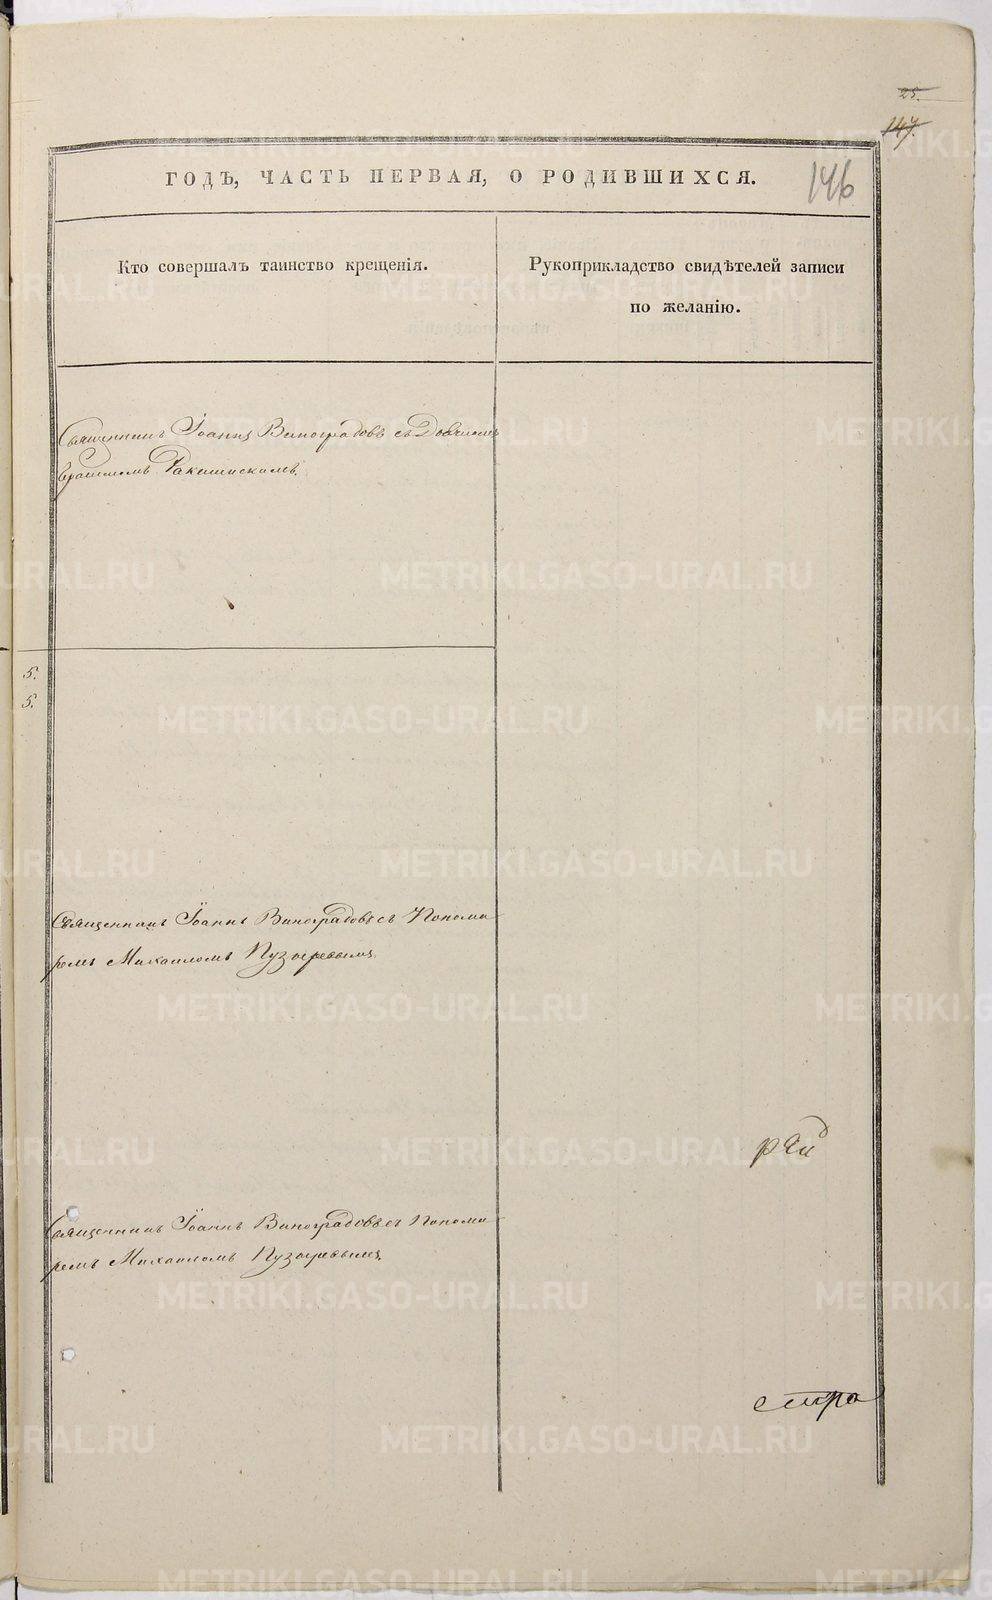 25.
147.
146
ГОДЪ, ЧАСТЬ ПЕРВАЯ, О РОДИВШИХСЯ.
Кто совершалъ таинство крещенія.
Рукоприкладство свидѣтелей записи
по желанію.
Священникъ Іоаннъ Виноградовъ съ
5.
5.
Священникъ Іоаннъ Виноградовъ съ Понома
ремъ Михаиломъ Пузыревымъ.
Священникъ Іоаннъ Виноградовъ съ Понома
ремъ Михаиломъ Пузыревымъ
METRIKI.GASO-URAL.RU